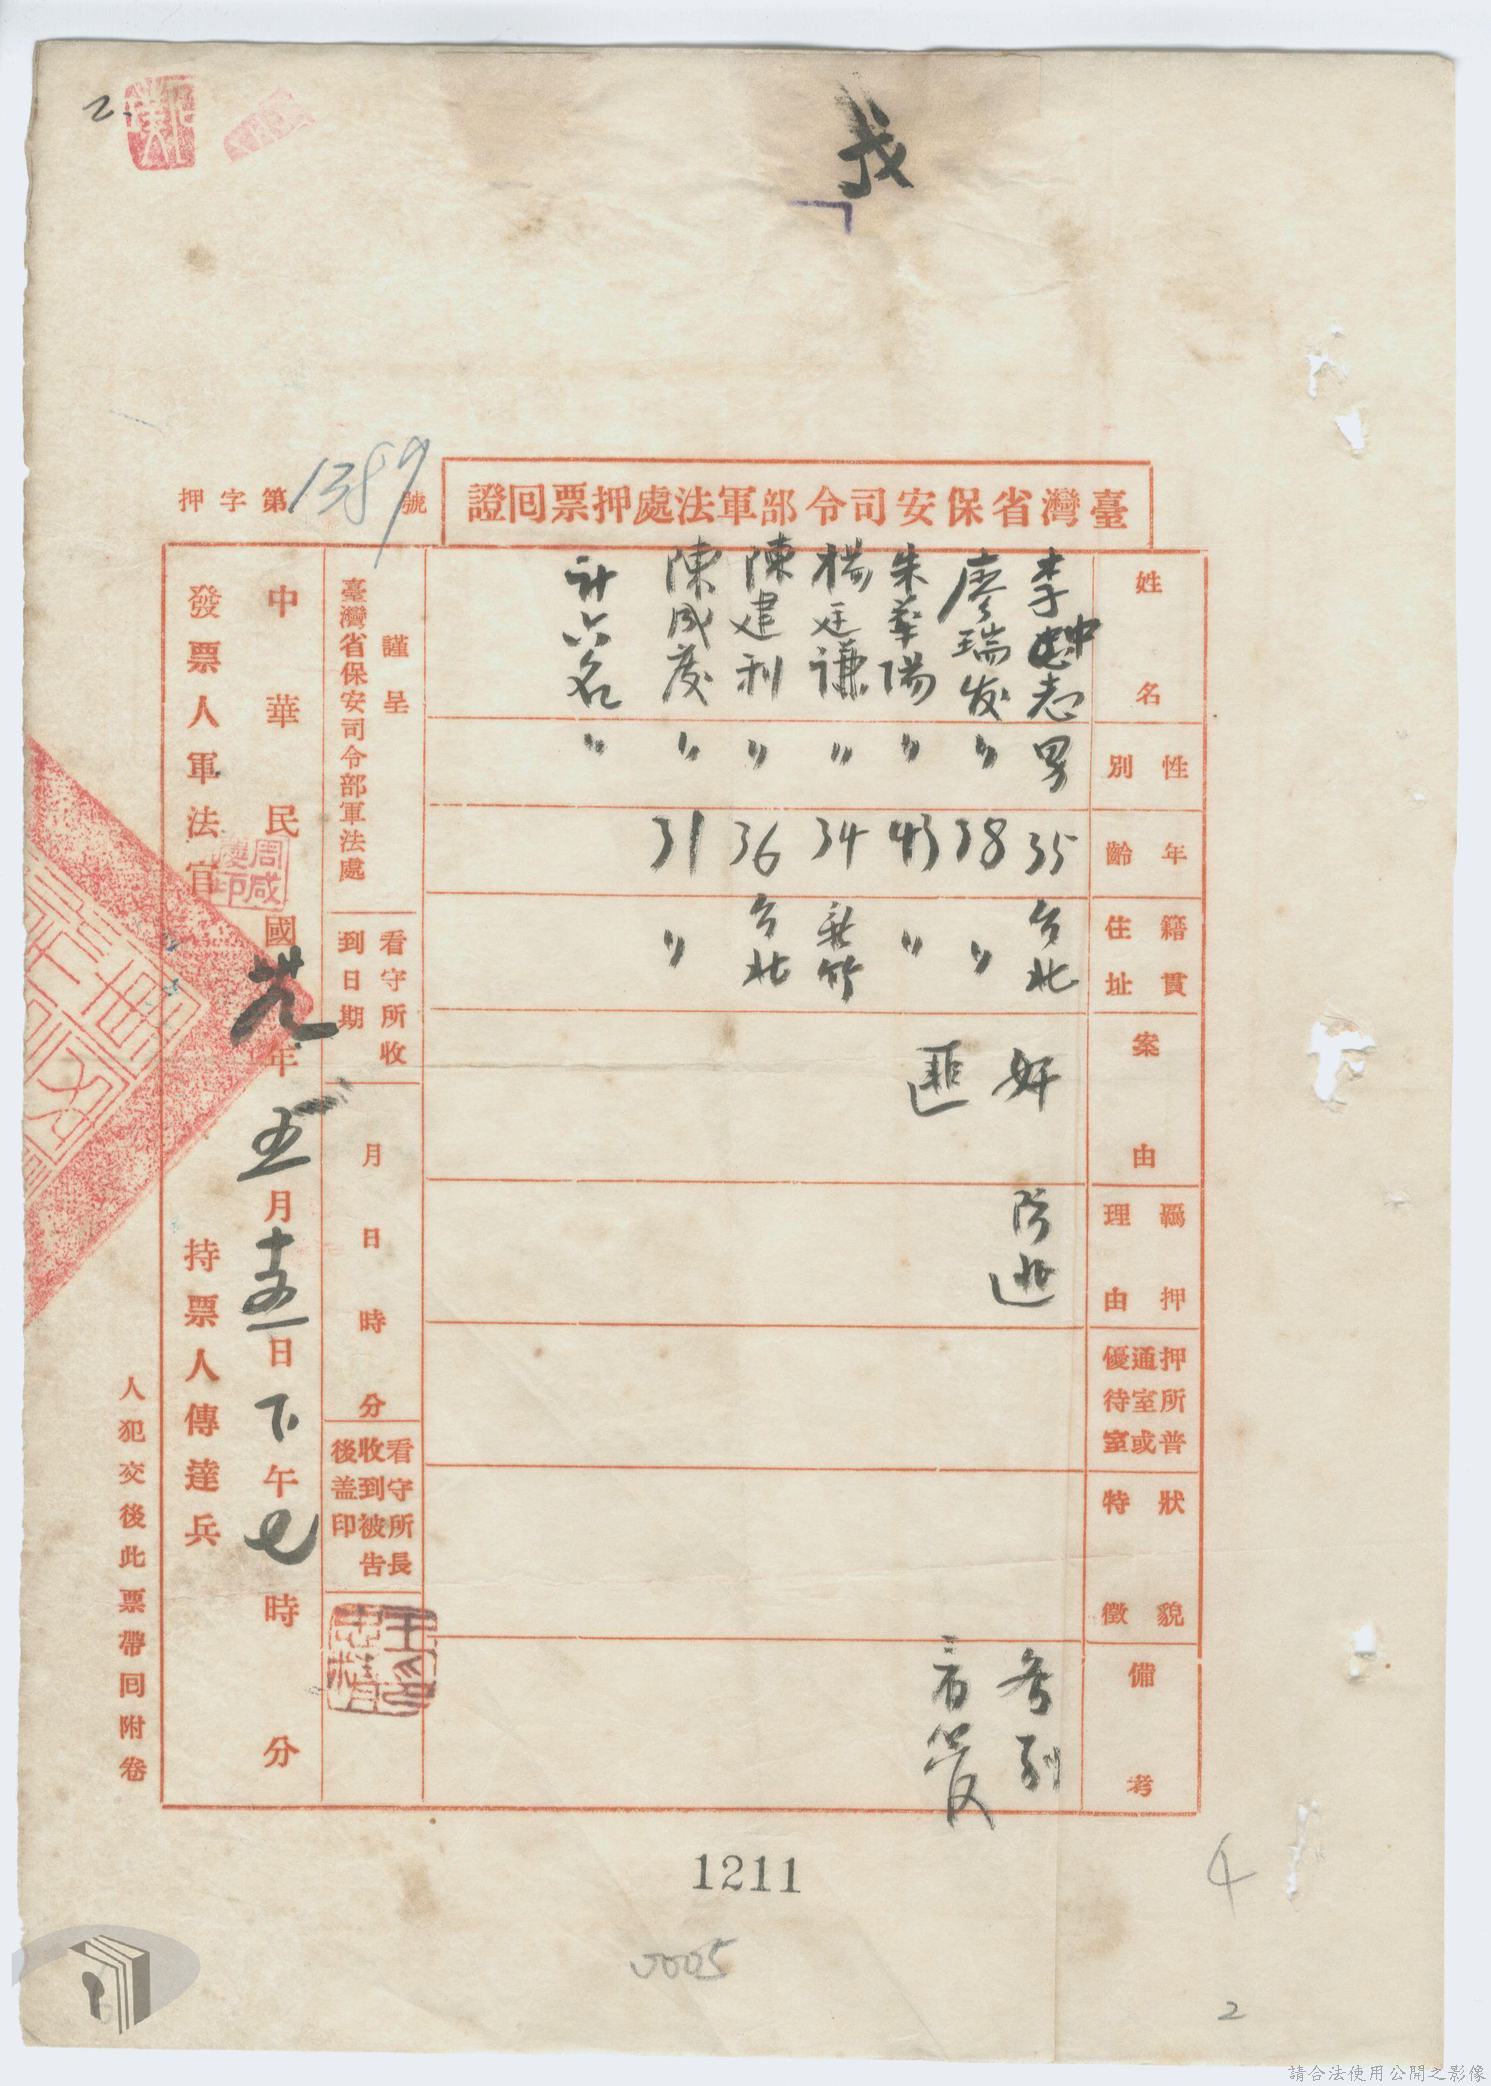 臺灣省保安司令部軍法處押票回證
押字第1389號
姓名
性別
年齡
籍貫住址
案由
羈押理由
押所普通室或優待室
狀貌特徵
備考
李中志 男 35 台北
廖瑞发 〃 38 〃
朱華陽 〃 43 〃
楊廷謙 〃 34 新竹
陳建利 〃 36 台北
陳成慶 〃 31 〃
計六名 〃
奸匪
防逃
謹呈
臺灣省保安司令部軍法處
看守所收到日期
月 日 時 分
看守所長收到被告後盖印
中華民國卅九年五月十五日下午七時 分
發票人軍法官
周咸慶印
持票人傳達兵
人犯交後此票帶回附卷
1211
0005
4
2
2
請合法使用公開之影像